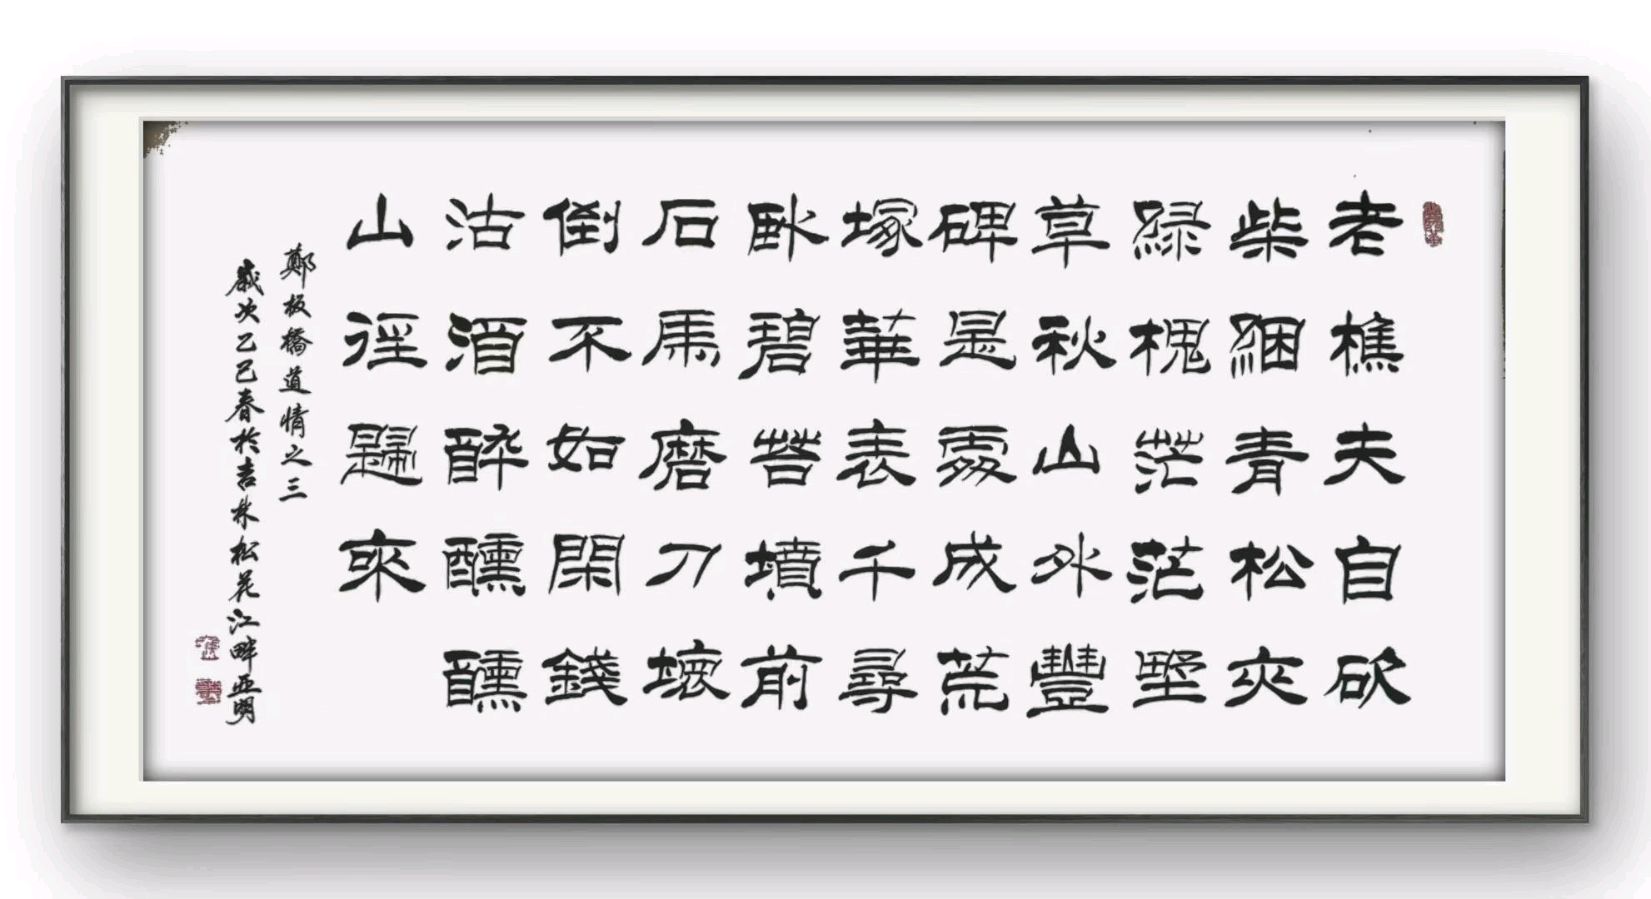 老樵夫自砍
柴綑青松夾
緑槐茫茫野
草秋山外豐
碑是處成荒
塚華表千尋
卧碧苔墳前
石馬磨刀壞
倒不如閑錢
沽酒醉醺醺
山徑歸來
鄭板橋道情之三
歲次乙巳春於吉林松花江畔亚明